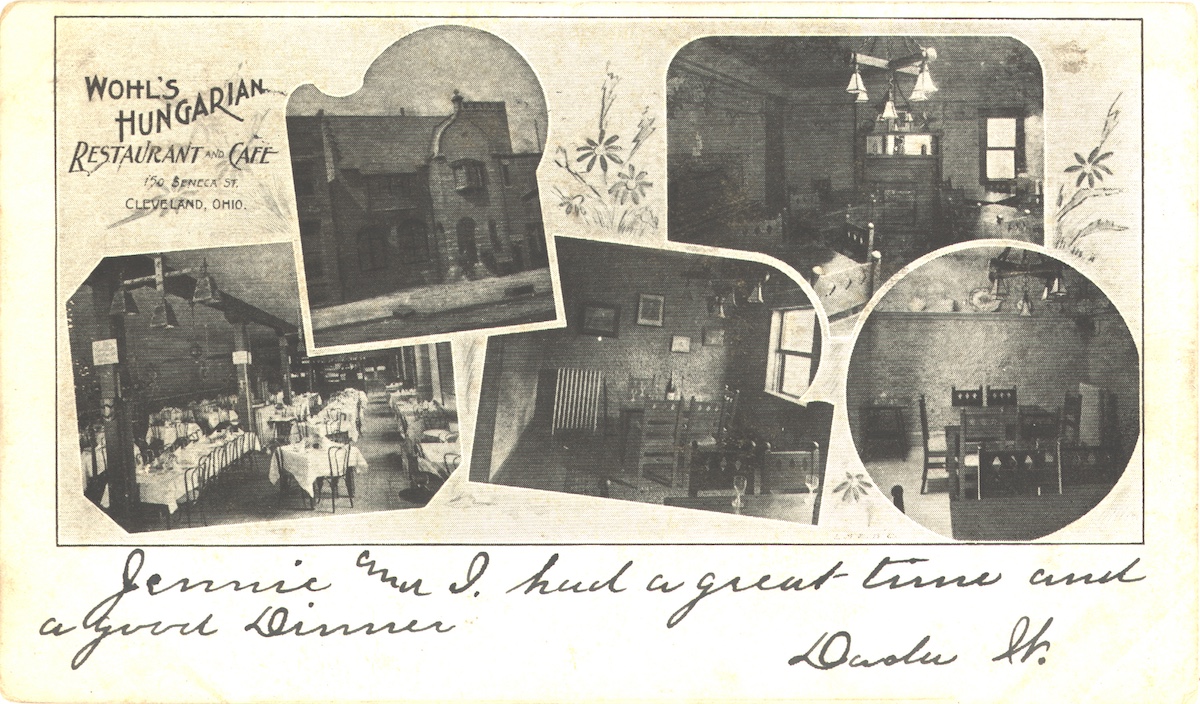 WOHL'S
HUNGARIAN
RESTAURANT AND CAFE
150 SENECA ST.
CLEVELAND, OHIO.
Jennie and I. had a great time and
a good Dinner